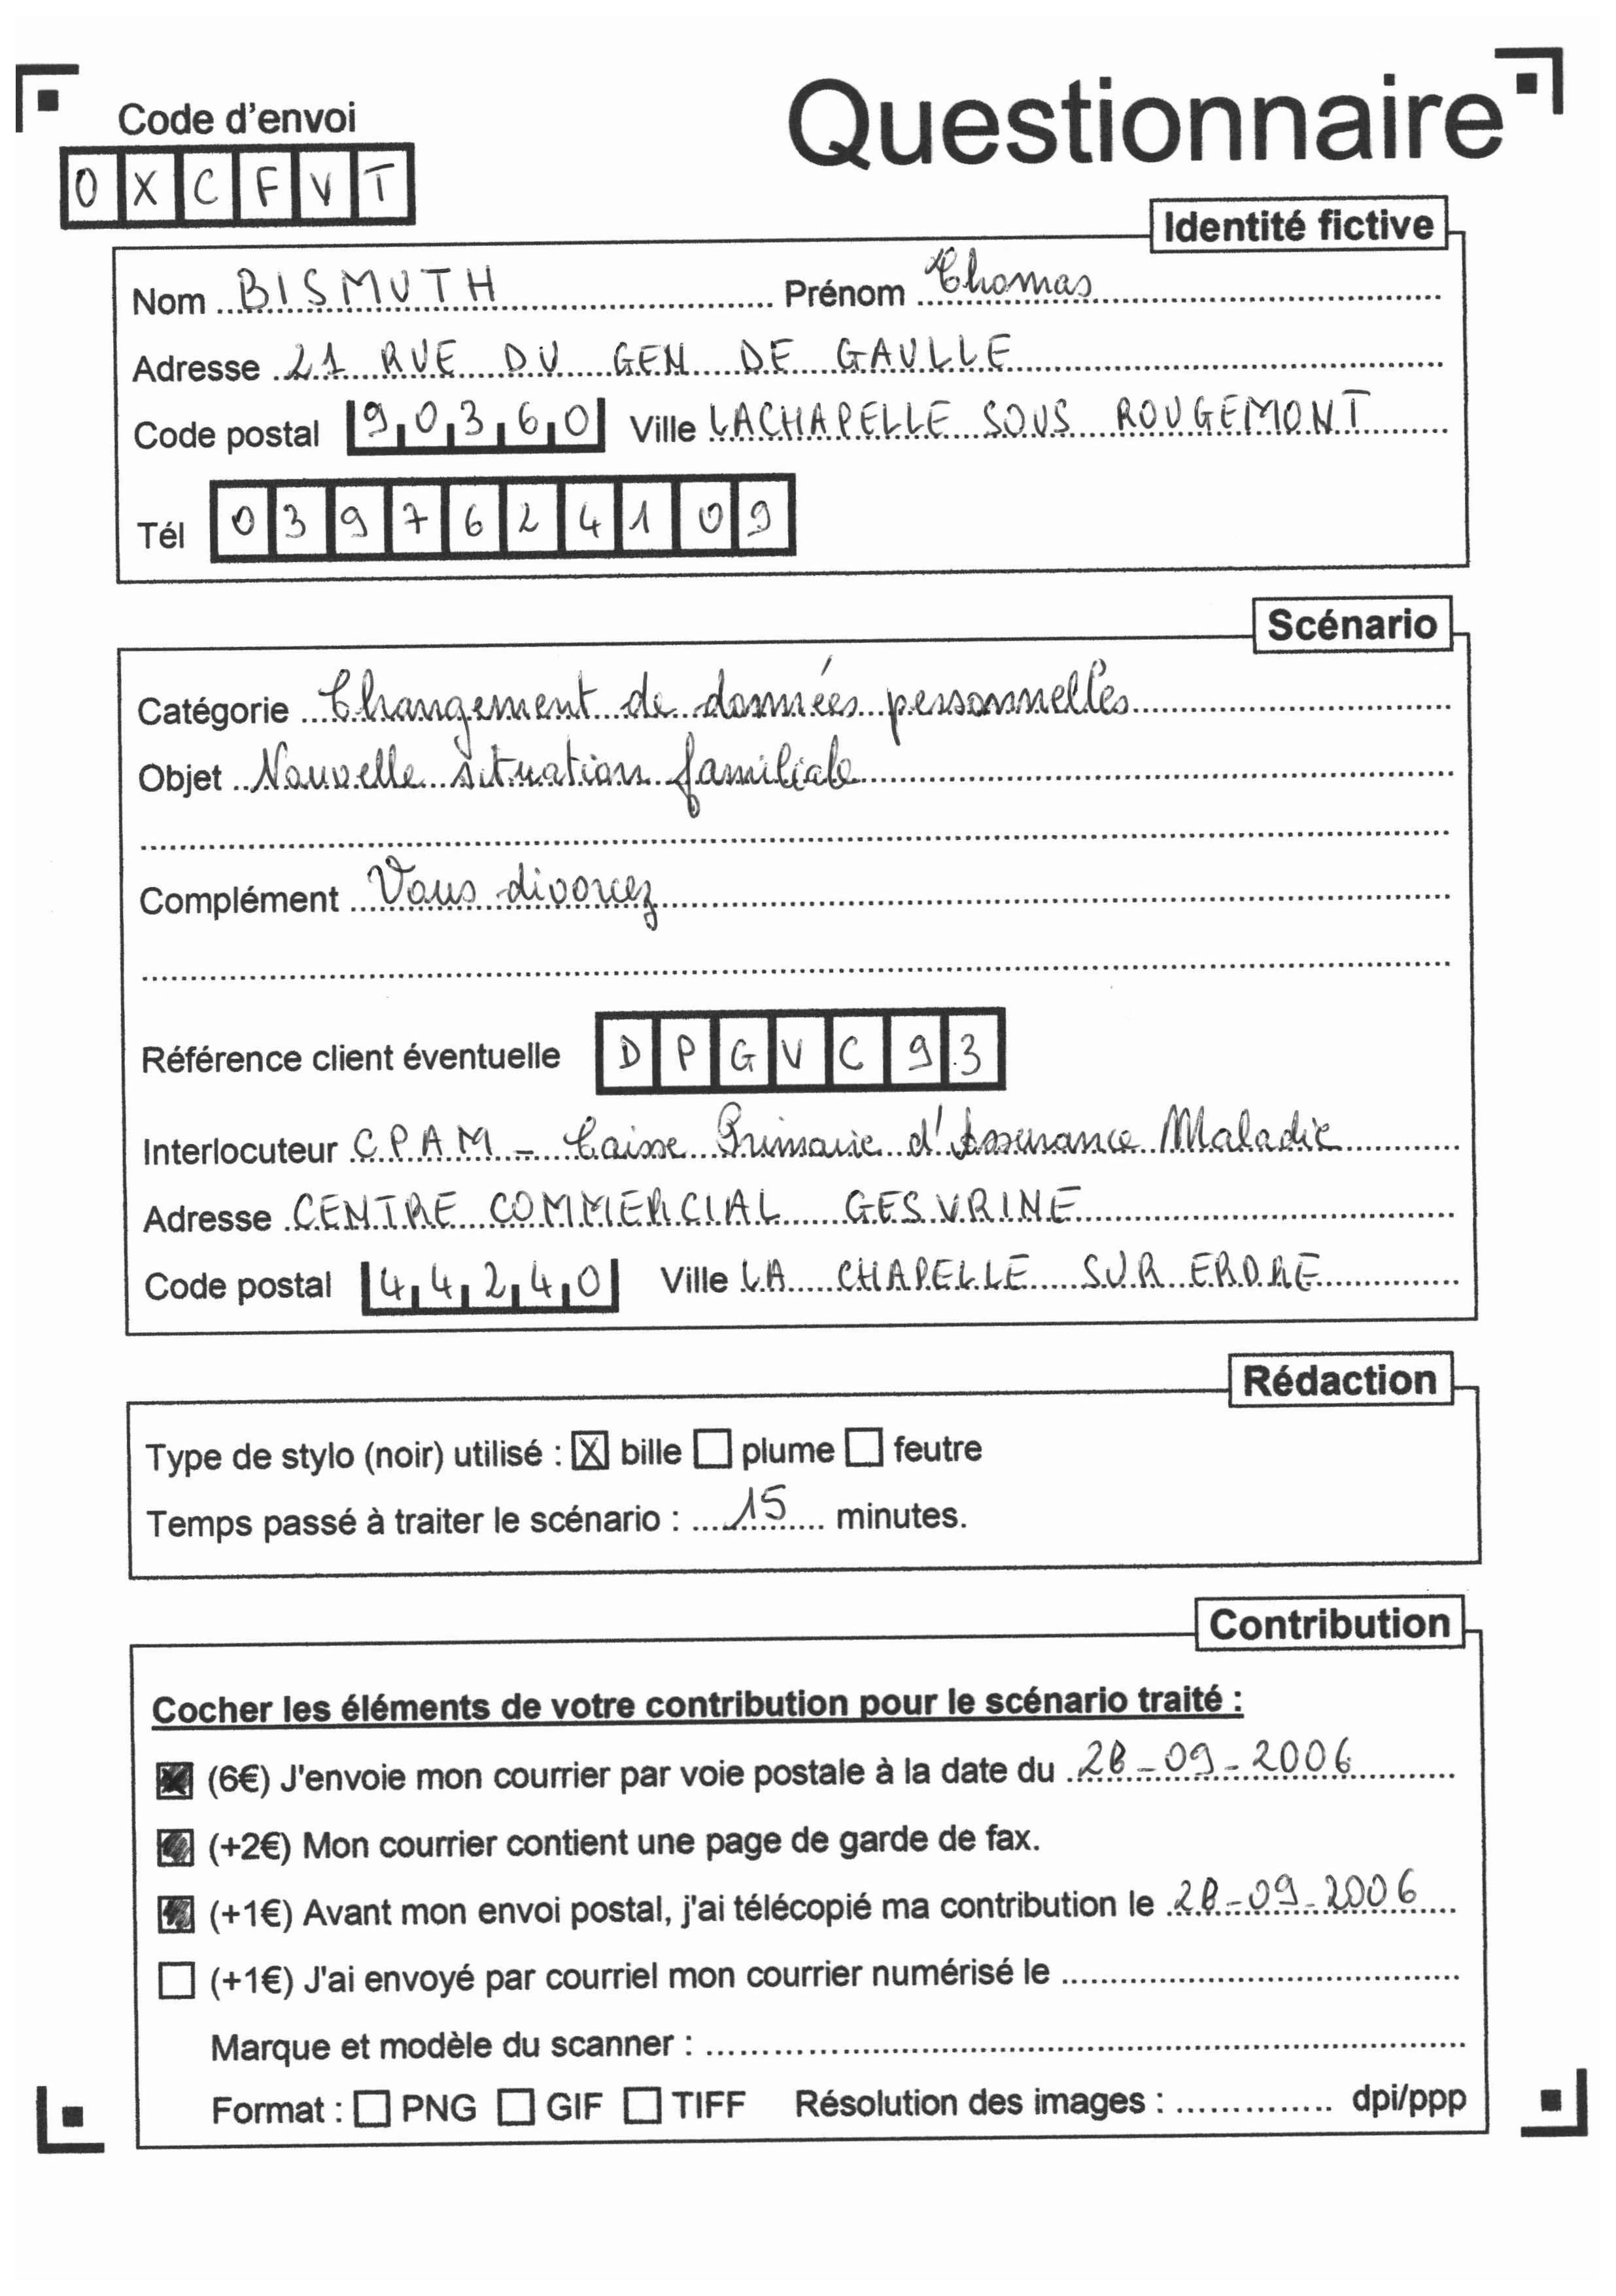 Questionnaire
Code d'envoi
OXCFVT
Identité fictive
Nom BISMUTH Prénom Thomas
Adresse 21 RUE DU GEN DE GAULLE
Code postal 90360 Ville LACHAPELLE SOUS ROUGEMONT
Tél 0397624109
Scénario
Catégorie Changement de données personnelles
Objet Nouvelle situation familiale
Complément Vous divorcez
Référence client éventuelle DPGVC93
Interlocuteur CPAM - Caisse Primaire d'Assurance Maladie
Adresse CENTRE COMMERCIAL GESVRINE
Code postal 44240 Ville LA CHAPELLE SUR ERDRE
Rédaction
Type de stylo (noir) utilisé : X bille plume feutre
Temps passé à traiter le scénario : 15 minutes.
Contribution
Cocher les éléments de votre contribution pour le scénario traité :
(6€) J'envoie mon courrier par voie postale à la date du 28-09-2006
(+2€) Mon courrier contient une page de garde de fax.
(+1€) Avant mon envoi postal, j'ai télécopié ma contribution le 28-09-2006
(+1€) J'ai envoyé par courriel mon courrier numérisé le
Marque et modèle du scanner :
Format : PNG GIF TIFF Résolution des images : dpi/ppp